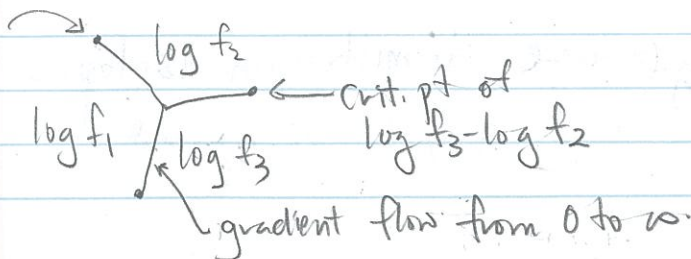 log f₂
crit. pt of
log f₁
log f₃
log f₃-log f₂
gradient flow from 0 to ∞.